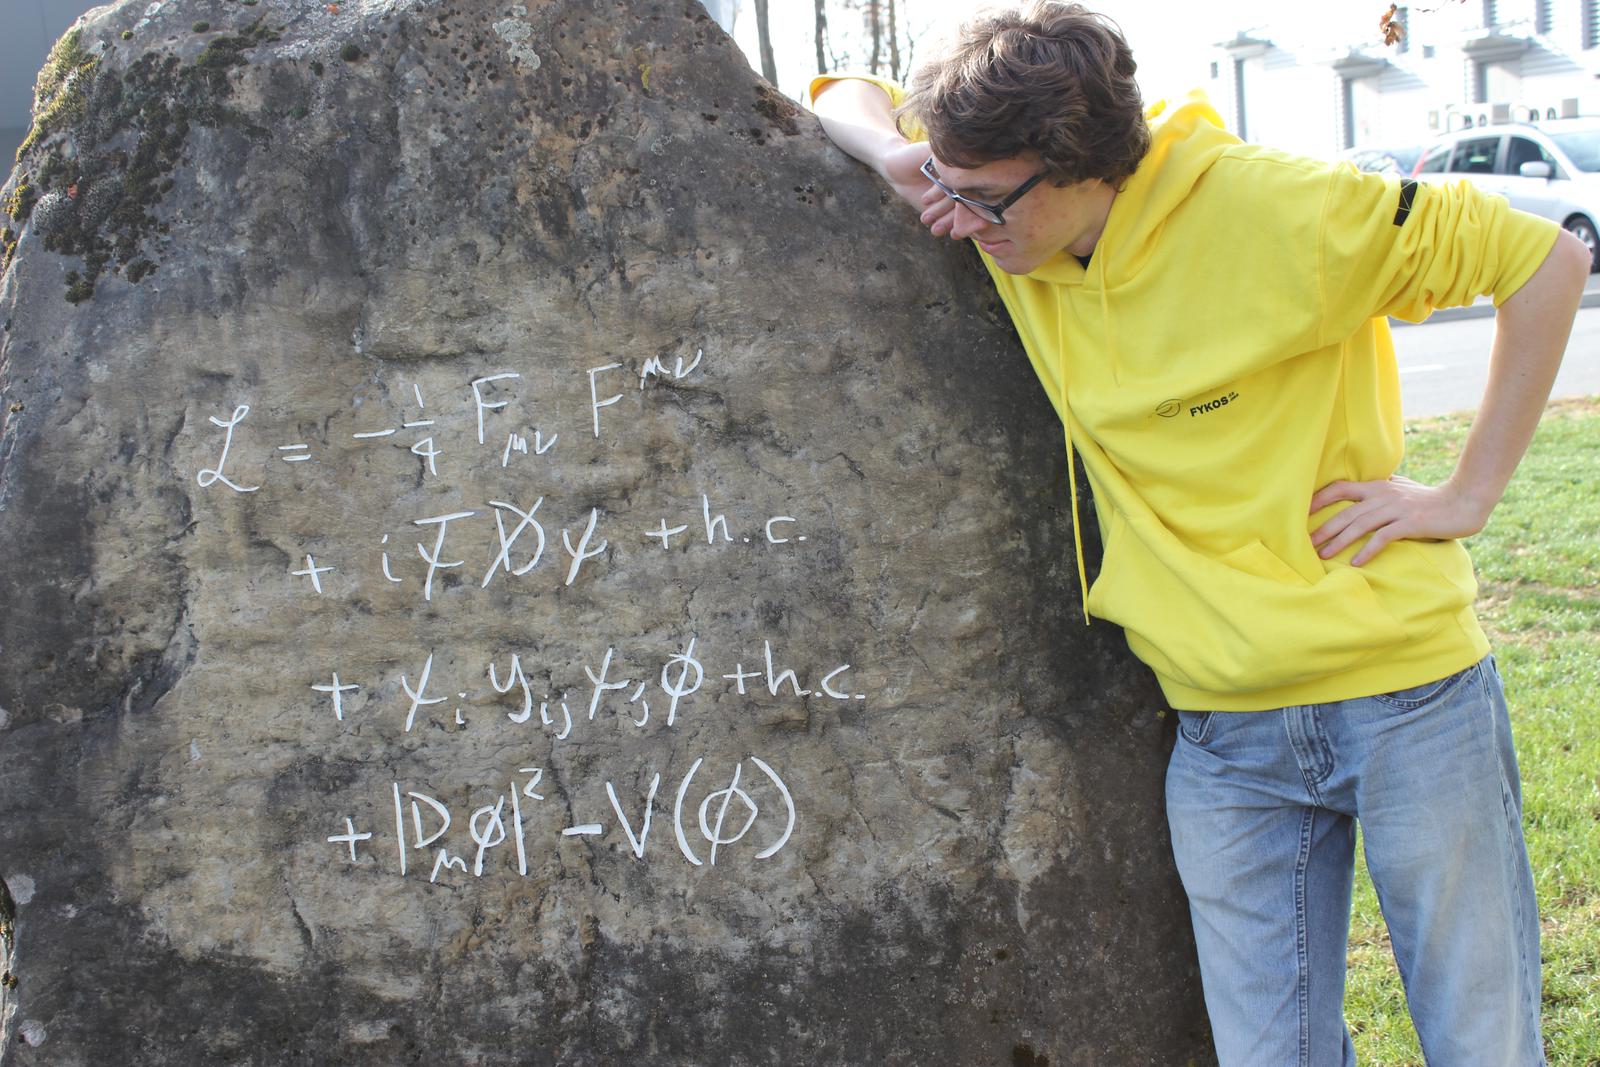 ℒ = -1/4 F_μν F^μν
+ i ψ̅ D̸ ψ + h.c.
+ ψ_i y_ij ψ_j ϕ + h.c.
+ |D_μ ϕ|² - V(ϕ)
FYKOS